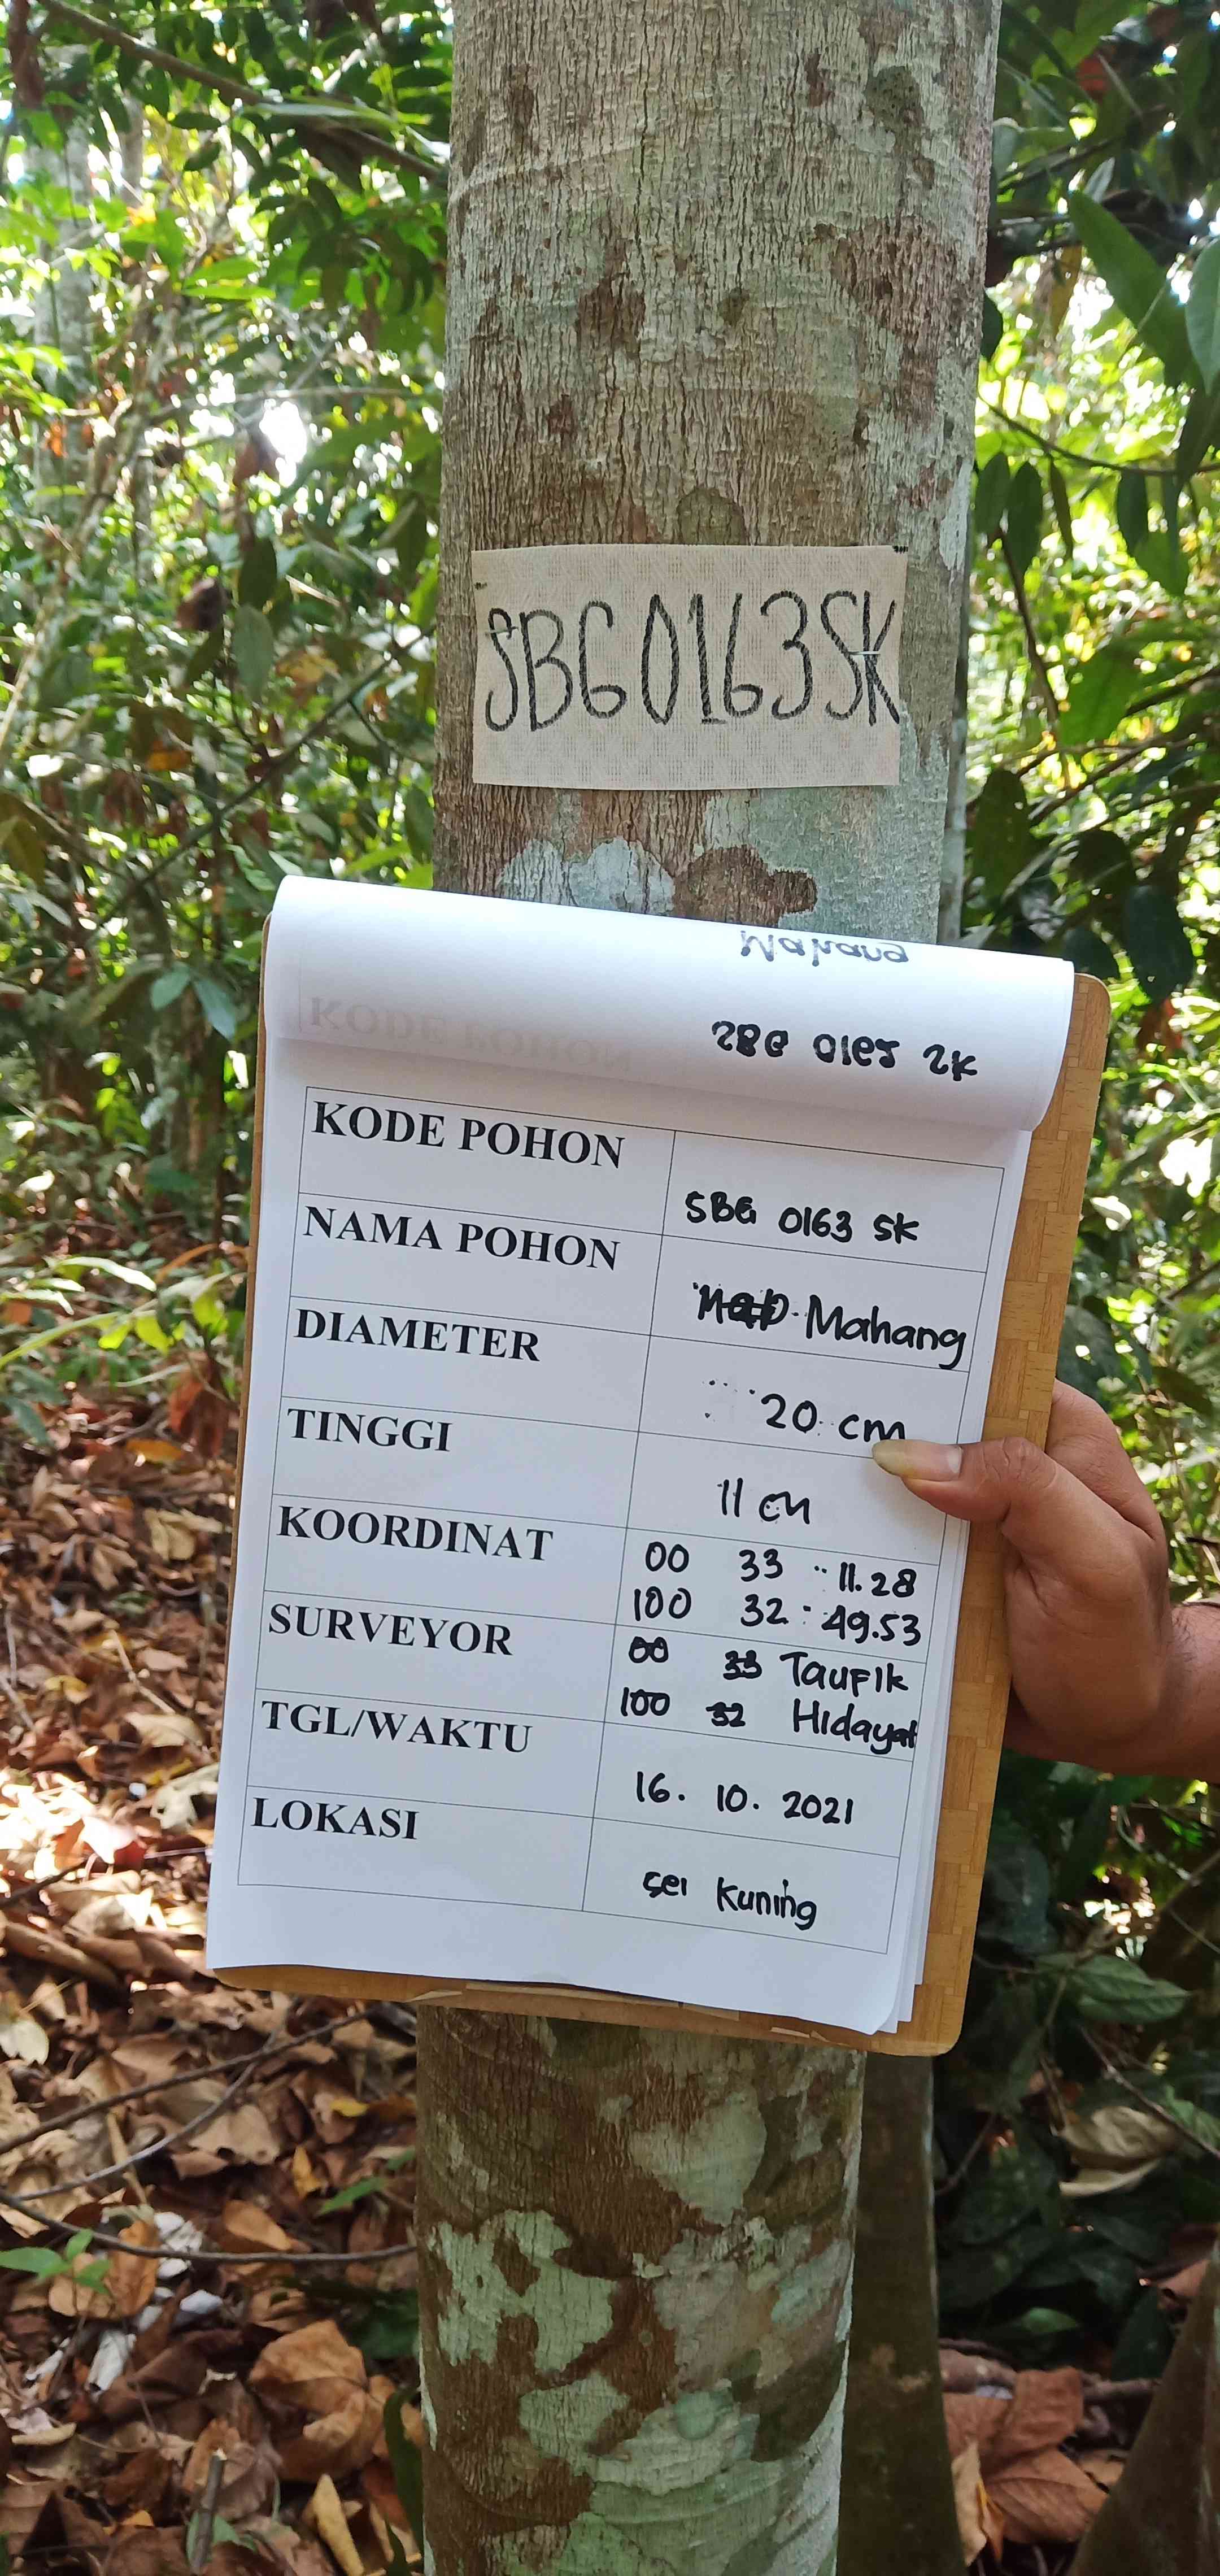 SBG0163SK
Mahang
KODE POHON
SBG 0162 SK
KODE POHON SBG 0163 SK
NAMA POHON Mahang
DIAMETER 20 cm
TINGGI 11 cm
KOORDINAT 00 33 11.28
100 32 49.53
SURVEYOR 00 33 Taufik
100 32 Hidayat
TGL/WAKTU 16. 10. 2021
LOKASI Sei Kuning